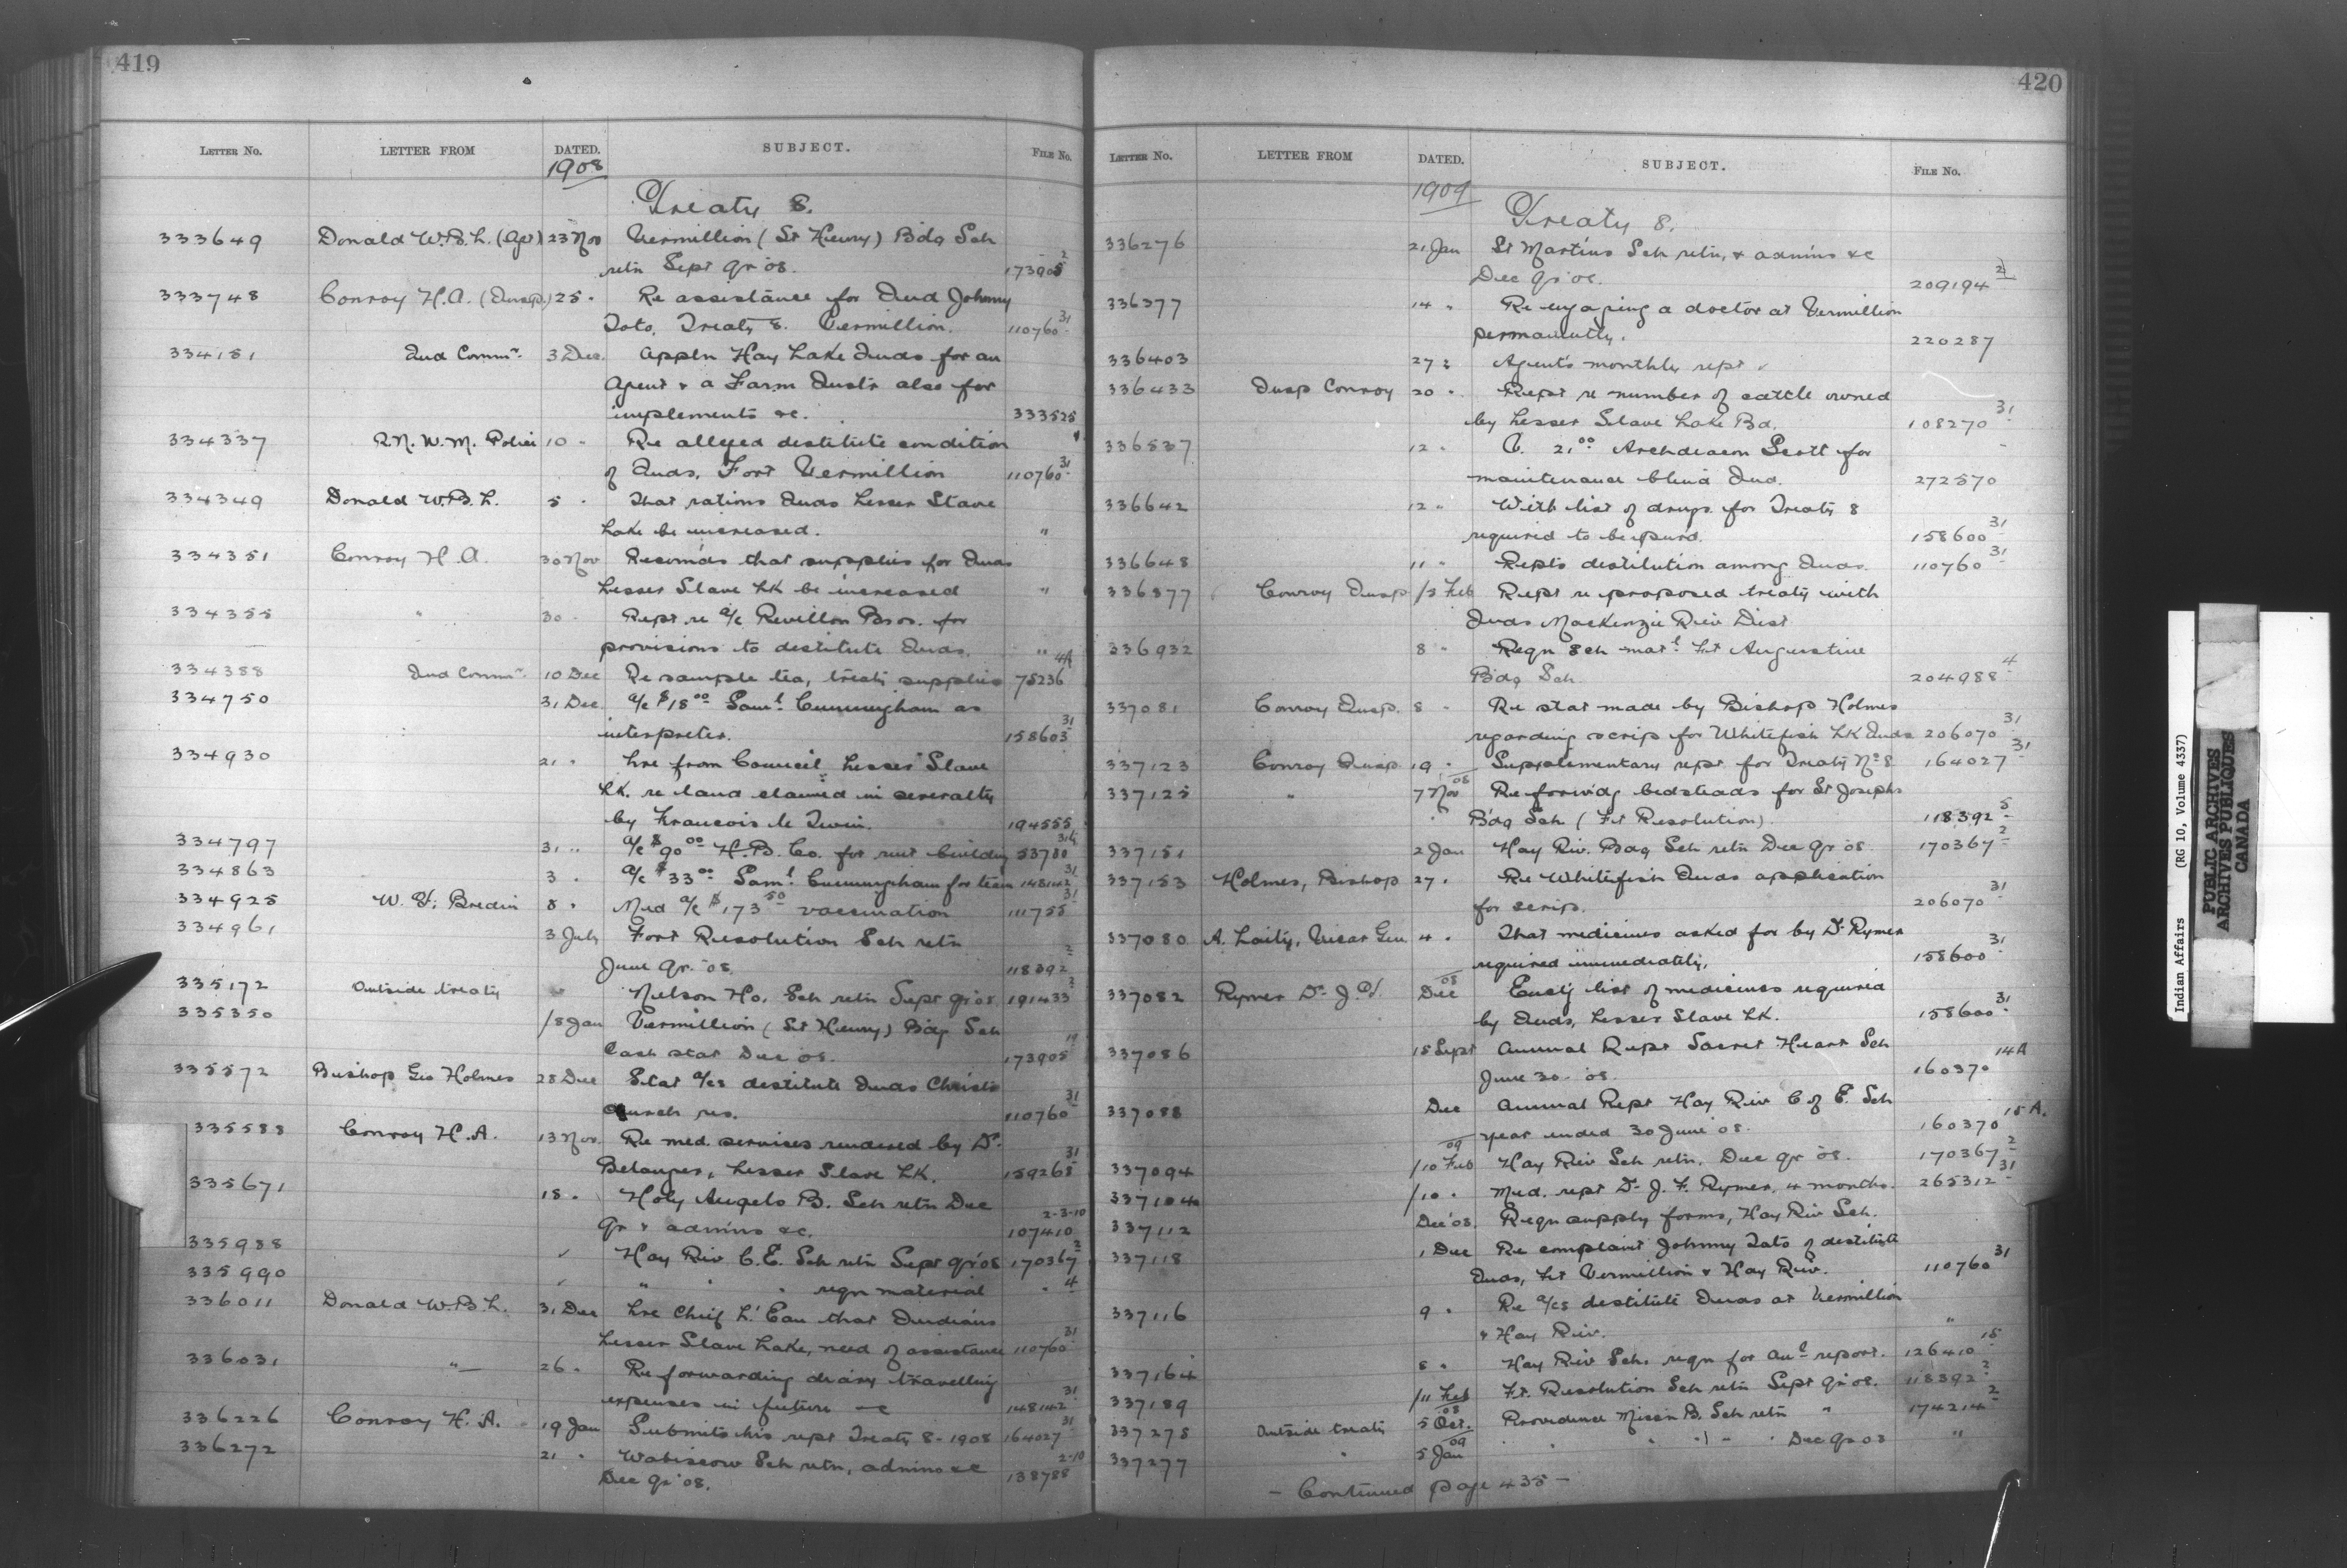 419
LETTER No. LETTER FROM DATED. SUBJECT. FILE No.
1908
Treaty 8.
333649 Donald W.B.L. (Agt) 23 Nov Vermillion (St Henry) Bdg Sch
retn Sept qr '08. 173905 2
333748 Conroy H.A. (Insp.) 25 " Re assistance for Ind Johnny
Tato, Treaty 8. Vermillion. 110760 31
334151 Ind Commr. 3 Dec. Appln Hay Lake Inds for an
Agent & a Farm Instr also for
implements &c. 333525
334337 R.N.W.M. Police 10 " Re alleged destitute condition
of Inds, Fort Vermillion 110760 31
334349 Donald W.B.L. 5 " That rations Inds Lesser Slave
Lake be increased. "
334351 Conroy H.A. 30 Nov Recomds that supplies for Inds
Lesser Slave Lk be increased "
334355 " 30 " Rept re a/c Revillon Bros. for
provisions to destitute Inds. "
334388 Ind Commr. 10 Dec Re sample tea, treaty supplies 75236 4A
334750 31 Dec. a/c $18.00 Saml Cunningham as
interpreter. 158603 31
334930 21 " Lre from Council Lesser Slave
Lk. re land claimed in severalty
by Francois le Twin. 194555
334797 31 " a/c $90.00 H.B. Co. for rent building 53780
334863 3 " a/c $33.00 Saml Cunningham for team 148142 31
334925 W. F. Bredin 8 " Med a/c $173.50 vaccination 111755 31
334961 3 July Fort Resolution Sch retn
June qr. '08. 118392 2
335172 Outside treaty " Nelson Ho. Sch retn Sept qr '08 191433 2
335350 18 Jan Vermillion (St Henry) Bdg Sch
Cash stat Dec '08. 173905 19
335572 Bishop Geo Holmes 28 Dec Stat a/cs destitute Inds Christ
Church res. 110760 31
335588 Conroy H.A. 13 Nov. Re med. services rendered by Dr.
Belanger, Lesser Slave Lk. 159268 31
335671 18 " Holy Angels B. Sch retn Dec
qr & admins &c. 107410 2-3-10
335988 " Hay Riv C.E. Sch retn Sept qr '08 170367 2
335990 " " " " reqn material " 4
336011 Donald W.B.L. 31 Dec Lre Chief L'Eau that Indians
Lesser Slave Lake, need of assistance 110760 31
336031 " 26 " Re forwarding diary travelling
expenses in future 148142 31
336226 Conroy H. A. 19 Jan Submits his rept Treaty 8 - 1908 164027 31
336272 21 " Wabiscow Sch retn, admins &c
Dec qr '08. 138788 2-10
420
LETTER No. LETTER FROM DATED. SUBJECT. FILE No.
1909
Treaty 8.
336276 21 Jan St Martins Sch retn, & admins &c
Dec qr '08. 209194 2
336377 14 " Re engaging a doctor at Vermillion
permanently. 220287
336403 27 " Agent's monthly rept
336433 Insp Conroy 20 " Rept re number of cattle owned
by Lesser Slave Lake Bd. 108270 31
336537 12 " C. 21.00 Archdeacon Scott for
maintenance blind Ind. 272570
336642 12 " With list of drugs for Treaty 8
required to be purd. 158600 31
336648 11 " Repts destitution among Inds. 110760 31
336877 Conroy Insp 13 Feb Rept re proposed treaty with
Inds MacKenzie Riv Dist
336932 8 " Reqn Sch matl Ft Augustine
Bdg Sch. 204988 4
337081 Conroy Insp. 8 " Re stat made by Bishop Holmes
regarding scrip for Whitefish Lk Inds 206070 31
337123 Conroy Insp. 19 " Supplementary rept for Treaty No 8 164027 31
337125 " 7 Nov 08 Re forwdg bedsteads for St Josephs
Bdg Sch (Ft Resolution). 118392 5
337151 2 Jan Hay Riv. Bdg Sch retn Dec qr '08. 170367 2
337153 Holmes, Bishop 27 " Re Whitefish Inds application
for scrip. 206070 31
337080 A. Laity, Vicar Gen. 4 " That medicines asked for by Dr Rymer
required immediately. 158600 31
337082 Rymer Dr J. Dec 08 Encl'g list of medicines required
by Inds, Lesser Slave Lk. 158600 31
337086 15 Sept Annual Rept Sacret Heart Sch
June 30 - '08. 160370 14A
337088 Dec Annual Rept Hay Riv C of E. Sch
year ended 30 June '08. 160370 15A.
337094 10 Feb 09 Hay Riv Sch retn. Dec qr '08. 170367 2
337104 10 " Med. rept Dr J. F. Rymer, 4 months. 265312 31
337112 Dec '08. Reqn supply forms, Hay Riv Sch.
337118 1 Dec Re complaint Johnny Tato of destitute
Inds, Ft Vermillion & Hay Riv. 110760 31
337116 9 " Re a/cs destitute Inds at Vermillion
& Hay Riv. "
337164 8 " Hay Riv Sch. reqn for anl report. 126410 15
337189 11 Feb Ft. Resolution Sch retn Sept qr '08. 118392 2
337275 Outside treaty 5 Oct. 08 Providence Missn B. Sch retn " 174214 2
337277 " 5 Jan 09 " " " " Dec qr 08 "
- Continued page 435 -
Indian Affairs (RG 10, Volume 4337)
PUBLIC ARCHIVES
ARCHIVES PUBLIQUES
CANADA